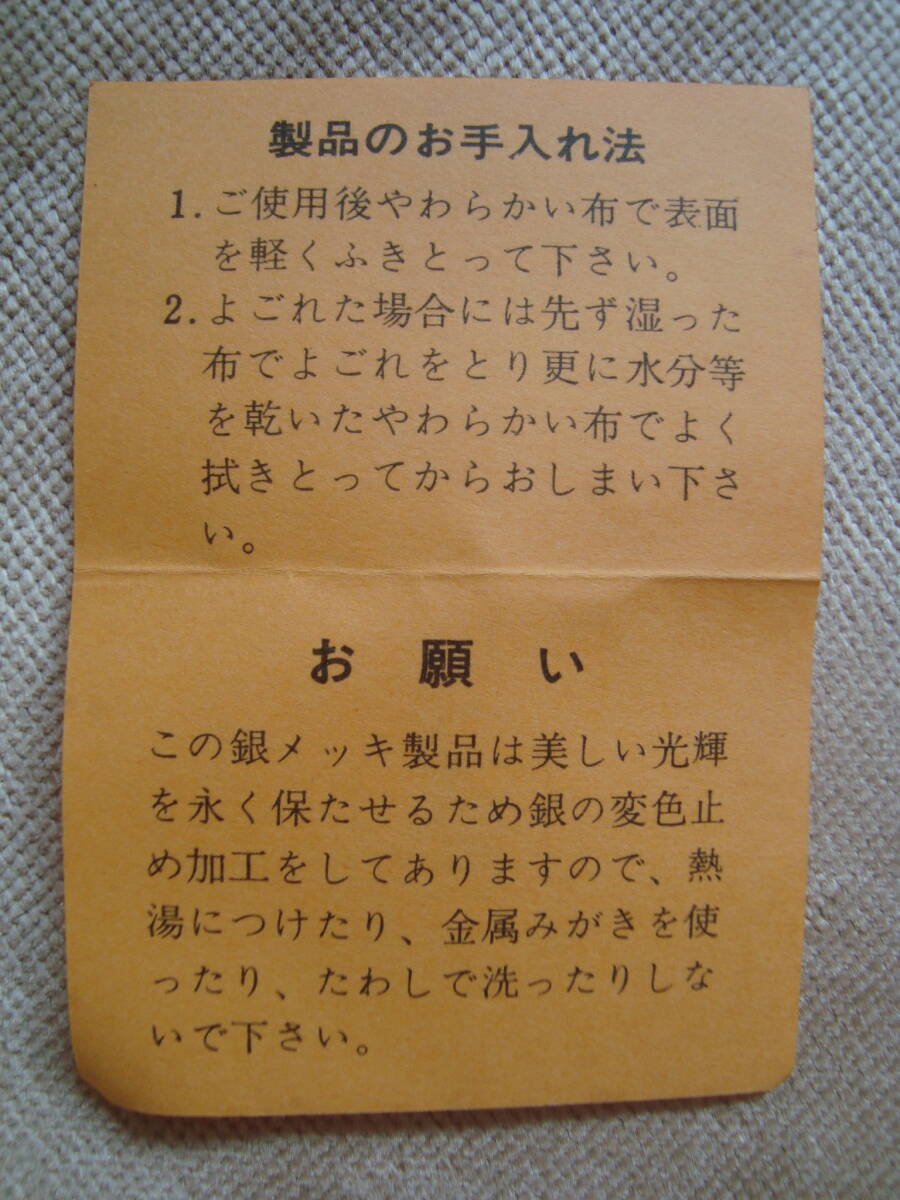 製品のお手入れ法
1. ご使用後やわらかい布で表面
を軽くふきとって下さい。
2. よごれた場合には先ず湿った
布でよごれをとり更に水分等
を乾いたやわらかい布でよく
拭きとってからおしまい下さ
い。
お願い
この銀メッキ製品は美しい光輝
を永く保たせるため銀の変色止
め加工をしてありますので、熱
湯につけたり、金属みがきを使
ったり、たわしで洗ったりしな
いで下さい。